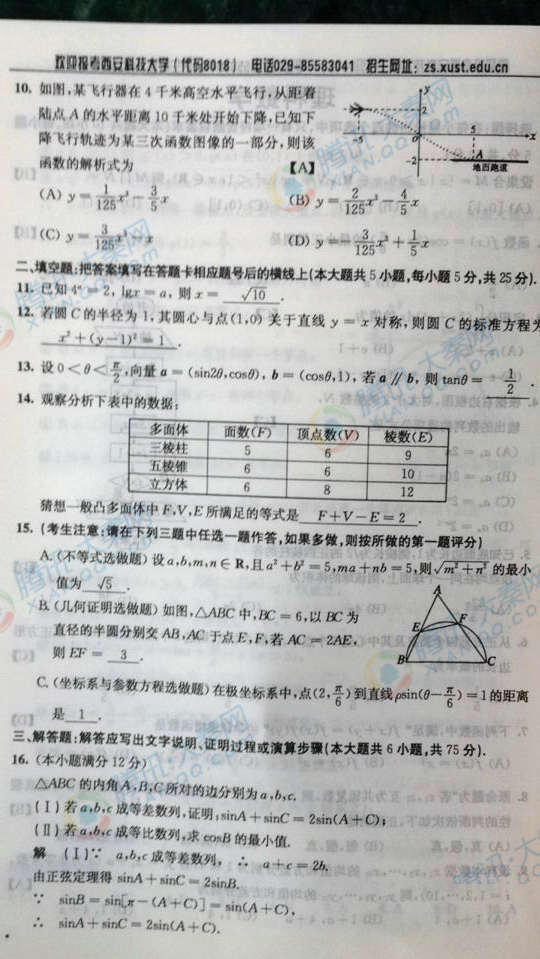 欢迎报考西安科技大学（代码8018） 电话029-85583041 招生网址：zs.xust.edu.cn
10. 如图,某飞行器在4千米高空水平飞行,从距着
陆点A的水平距离10千米处开始下降,已知下
降飞行轨迹为某三次函数图像的一部分,则该
函数的解析式为 【A】
y
2
-5 O 5 x
-2 A
地面跑道
(A) y = 1/125 x³ - 3/5 x (B) y = 2/125 x³ - 4/5 x
(C) y = 3/125 x³ - x (D) y = -3/125 x³ + 1/5 x
二、填空题:把答案填写在答题卡相应题号后的横线上(本大题共5小题,每小题5分,共25分).
11. 已知 4ᵃ = 2, lgx = a, 则 x = √10 .
12. 若圆C的半径为1,其圆心与点(1,0)关于直线 y = x 对称,则圆C的标准方程为
x² + (y-1)² = 1 .
13. 设 0 < θ < π/2, 向量 a = (sin2θ,cosθ), b = (cosθ,1), 若 a // b, 则 tanθ = 1/2 .
14. 观察分析下表中的数据:
多面体 面数(F) 顶点数(V) 棱数(E)
三棱柱 5 6 9
五棱锥 6 6 10
立方体 6 8 12
猜想一般凸多面体中F,V,E所满足的等式是 F+V-E=2 .
15. (考生注意:请在下列三题中任选一题作答,如果多做,则按所做的第一题评分)
A. (不等式选做题) 设 a,b,m,n ∈ R, 且 a² + b² = 5, ma + nb = 5, 则 √m² + n² 的最小
值为 √5 .
B. (几何证明选做题) 如图,△ABC中,BC = 6, 以BC为
直径的半圆分别交AB,AC于点E,F,若 AC = 2AE,
则 EF = 3 .
A
E F
B C
C. (坐标系与参数方程选做题) 在极坐标系中,点(2, π/6)到直线 ρsin(θ - π/6) = 1 的距离
是 1 .
三、解答题:解答应写出文字说明、证明过程或演算步骤(本大题共6小题,共75分).
16. (本小题满分12分)
△ABC的内角A,B,C所对的边分别为a,b,c.
(Ⅰ) 若a,b,c成等差数列,证明: sinA + sinC = 2sin(A + C);
(Ⅱ) 若a,b,c成等比数列,求cosB的最小值.
解 (Ⅰ) ∵ a,b,c成等差数列, ∴ a + c = 2b.
由正弦定理得 sinA + sinC = 2sinB.
∵ sinB = sin[π - (A + C)] = sin(A + C),
∴ sinA + sinC = 2sin(A + C).